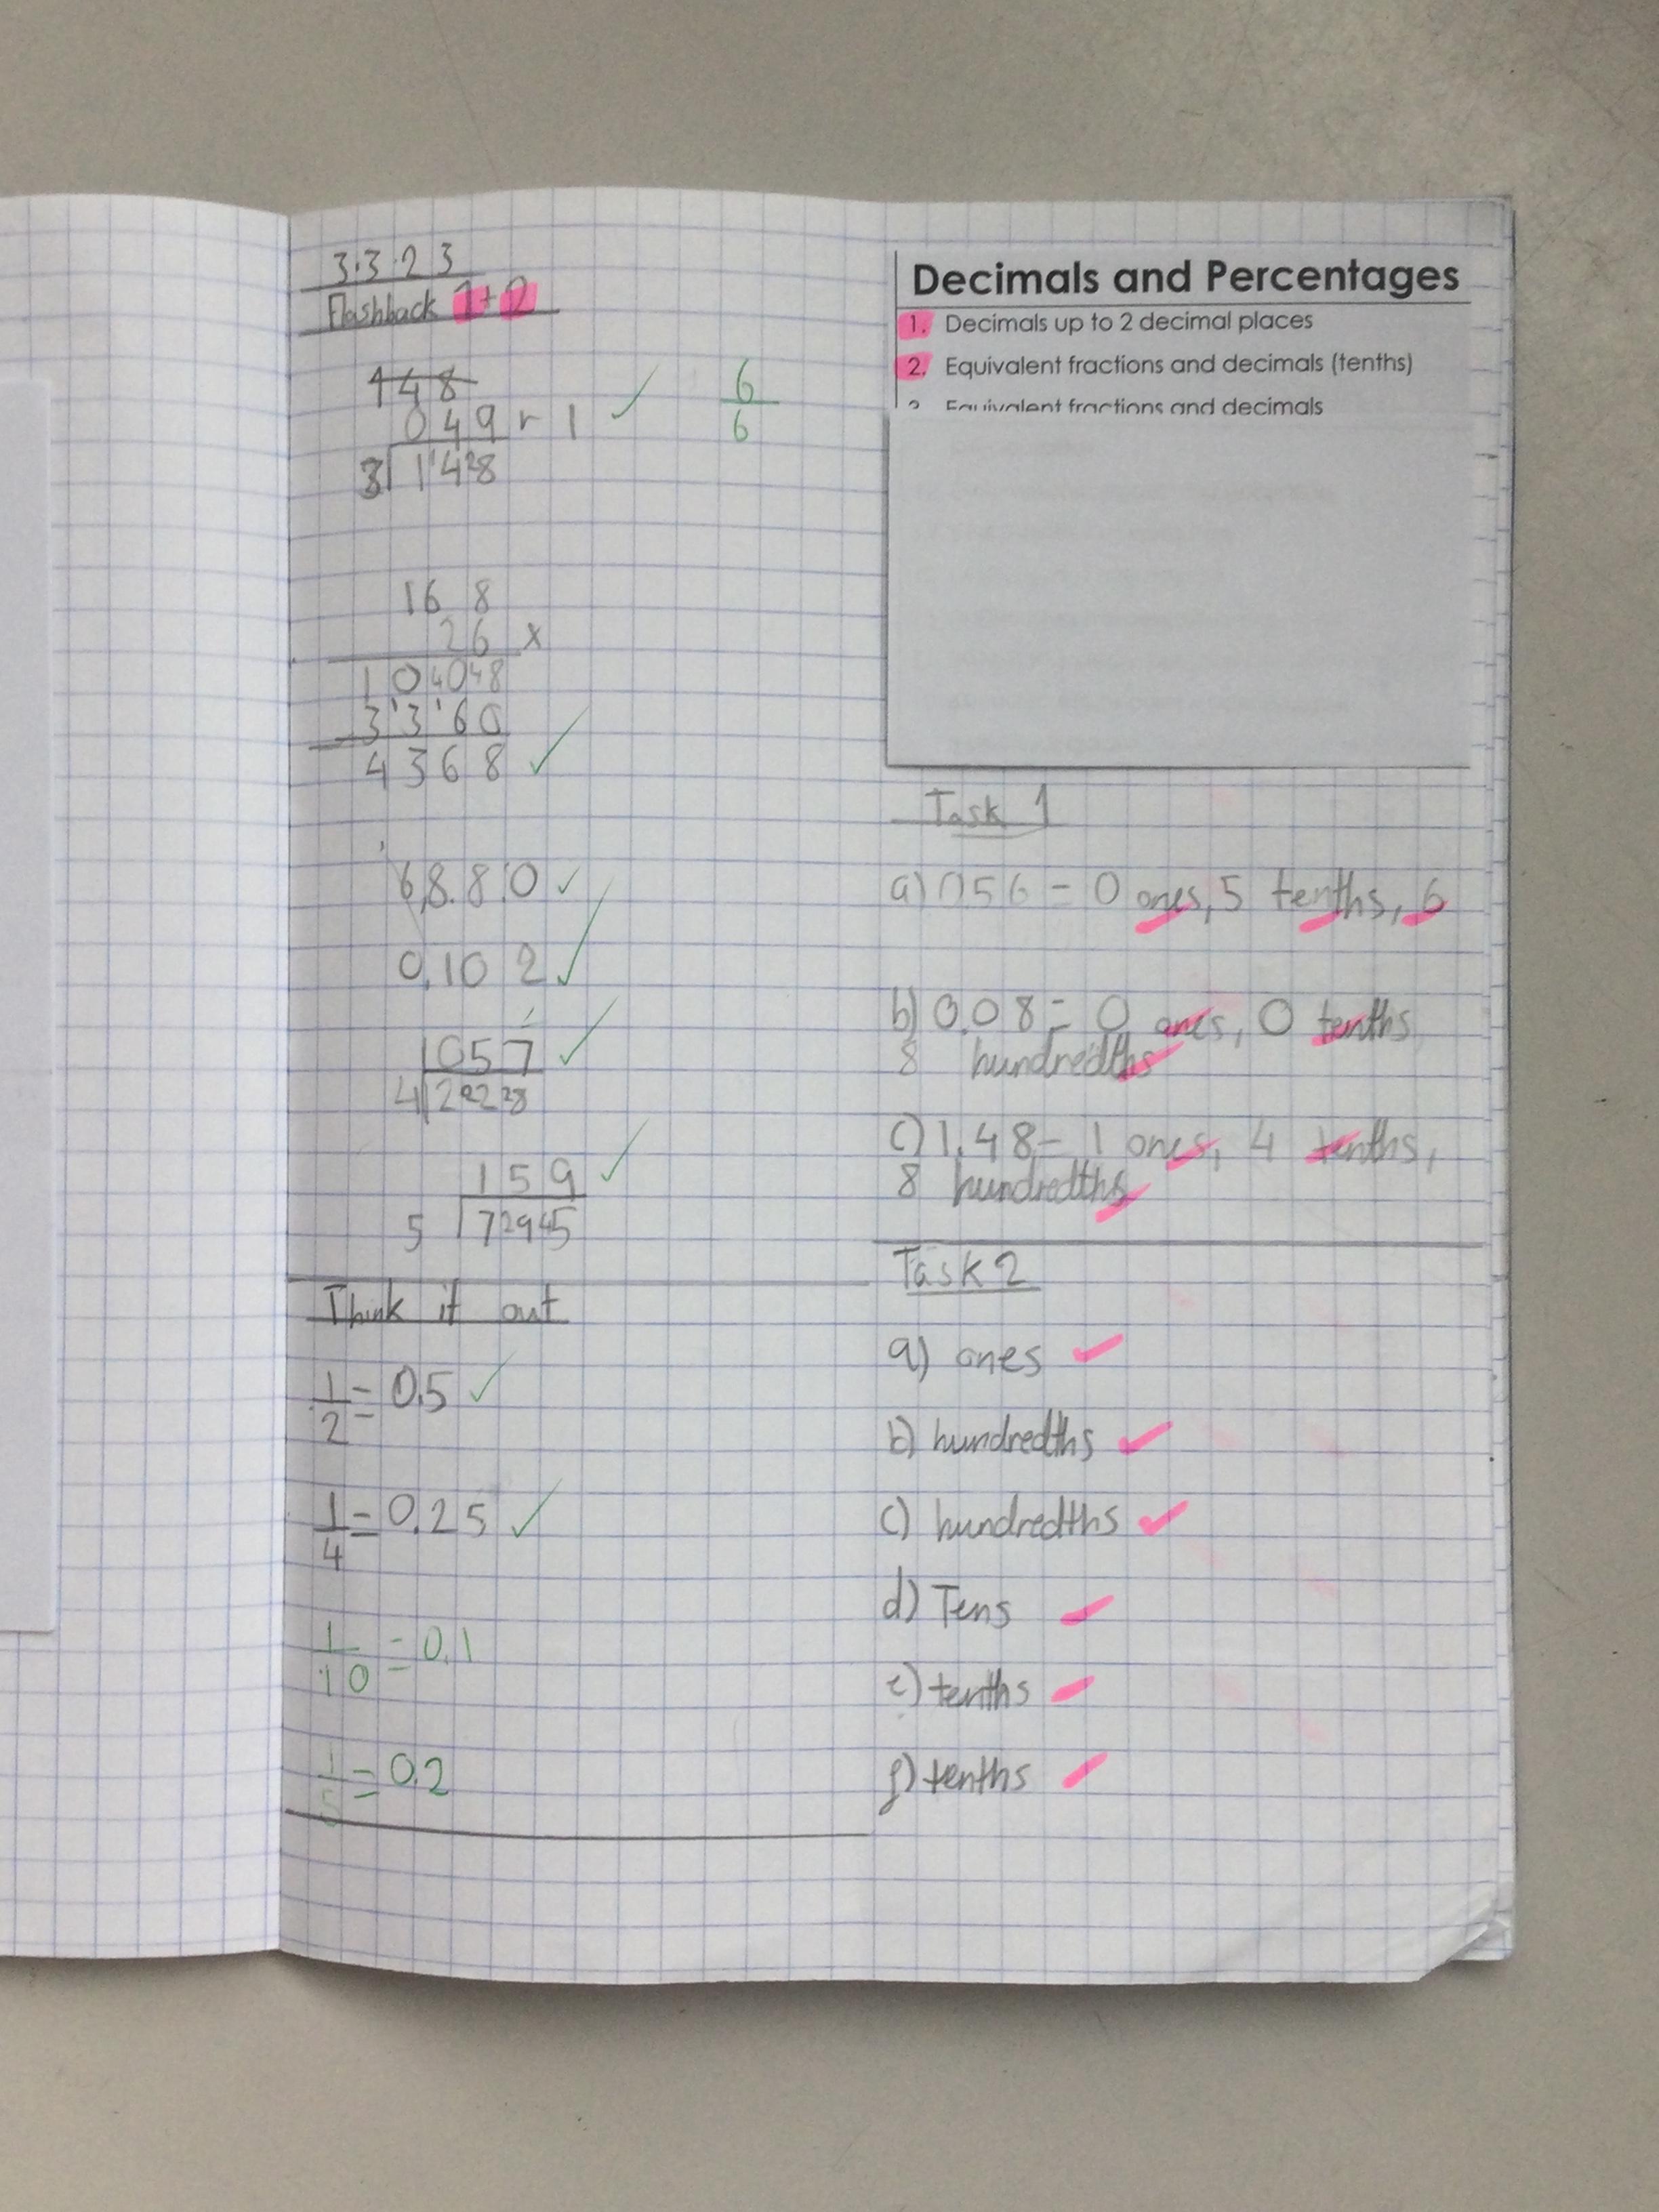 3.3.23
Flashback 1+2
148
049 r 1
3 1 14 28
6
6
168
26 x
1040 48
3360
4368
68.80
0.102
057
4 2 22 28
159
5 7 29 45
Think it out
1/2 = 0.5
1/4 = 0.25
1/10 = 0.1
= 0.2
Decimals and Percentages
1. Decimals up to 2 decimal places
2. Equivalent fractions and decimals (tenths)
Equivalent fractions and decimals
Task 1
a) 0.56 = 0 ones, 5 tenths, 6
b) 0.08 = 0 ones, 0 tenths
8 hundredths
c) 1.48 = 1 ones, 4 tenths,
8 hundredths
Task 2
a) ones
b) hundredths
c) hundredths
d) Tens
e) tenths
f) tenths